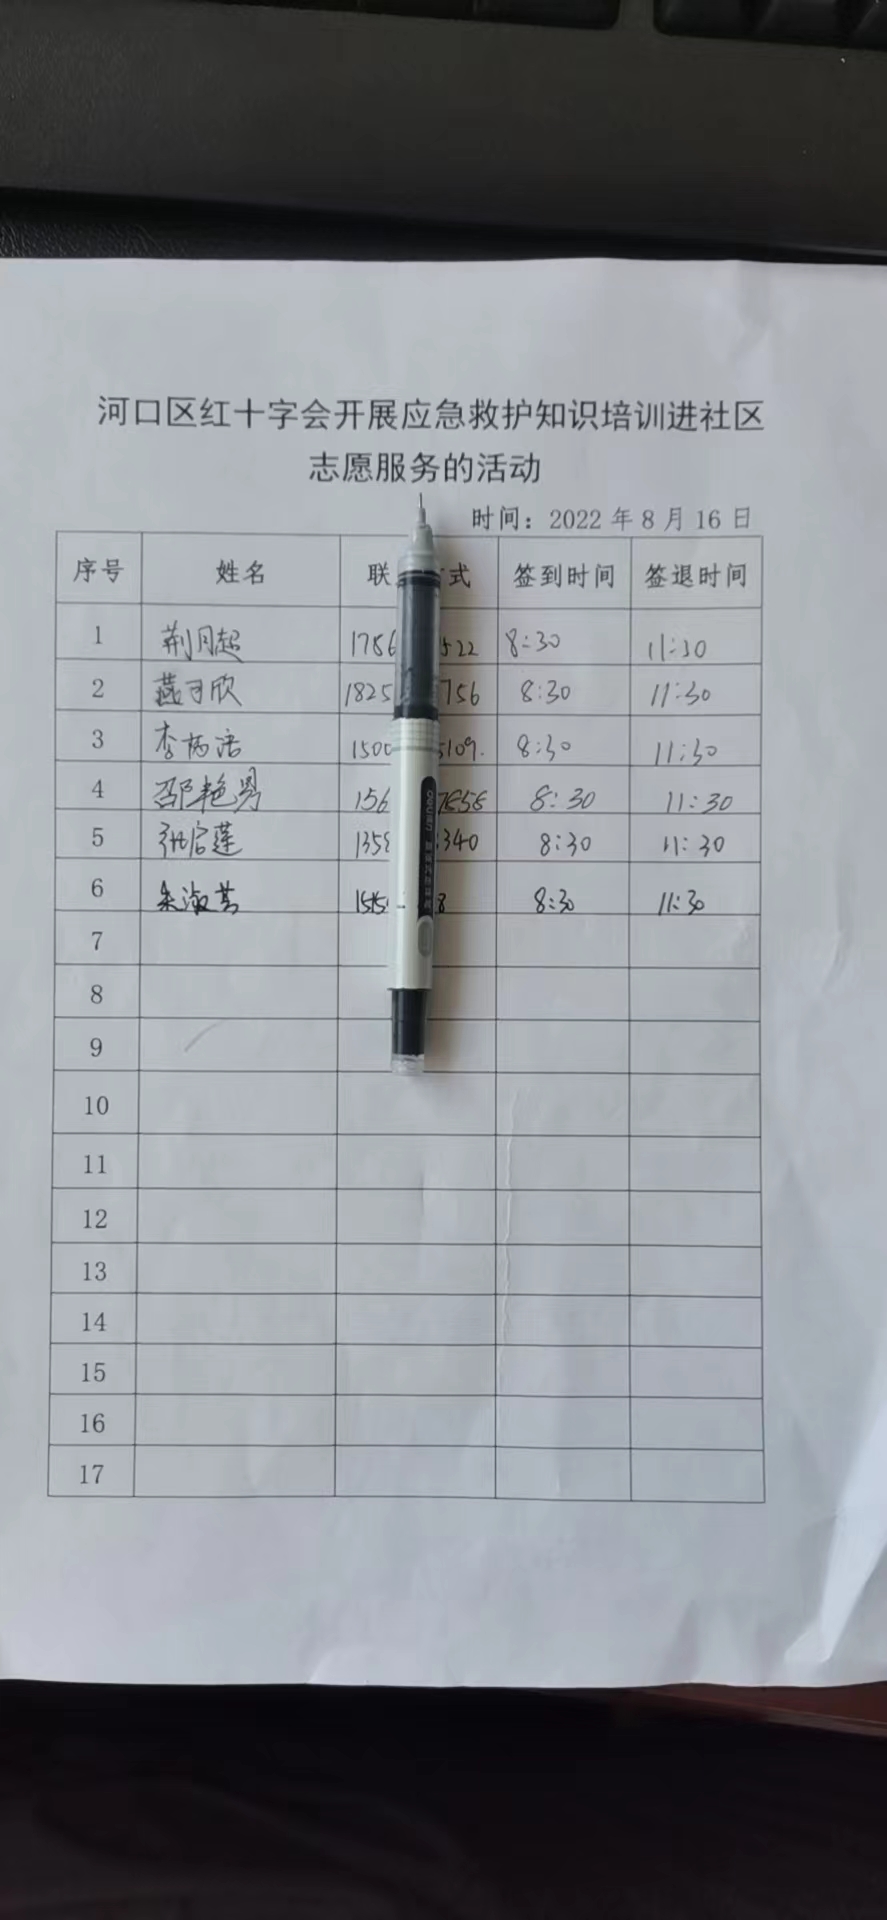 河口区红十字会开展应急救护知识培训进社区
志愿服务的活动
时间：2022年8月16日
序号 姓名 联 式 签到时间 签退时间
1 荆月超 1786 522 8:30 11:30
2 燕可欣 1825 756 8:30 11:30
3 李 浩 1500 5109. 8:30 11:30
4 邵艳男 156 7858 8:30 11:30
5 张启莲 1358 340 8:30 11:30
6 朱淑 8 8:30 11:30
7
8
9
10
11
12
13
14
15
16
17